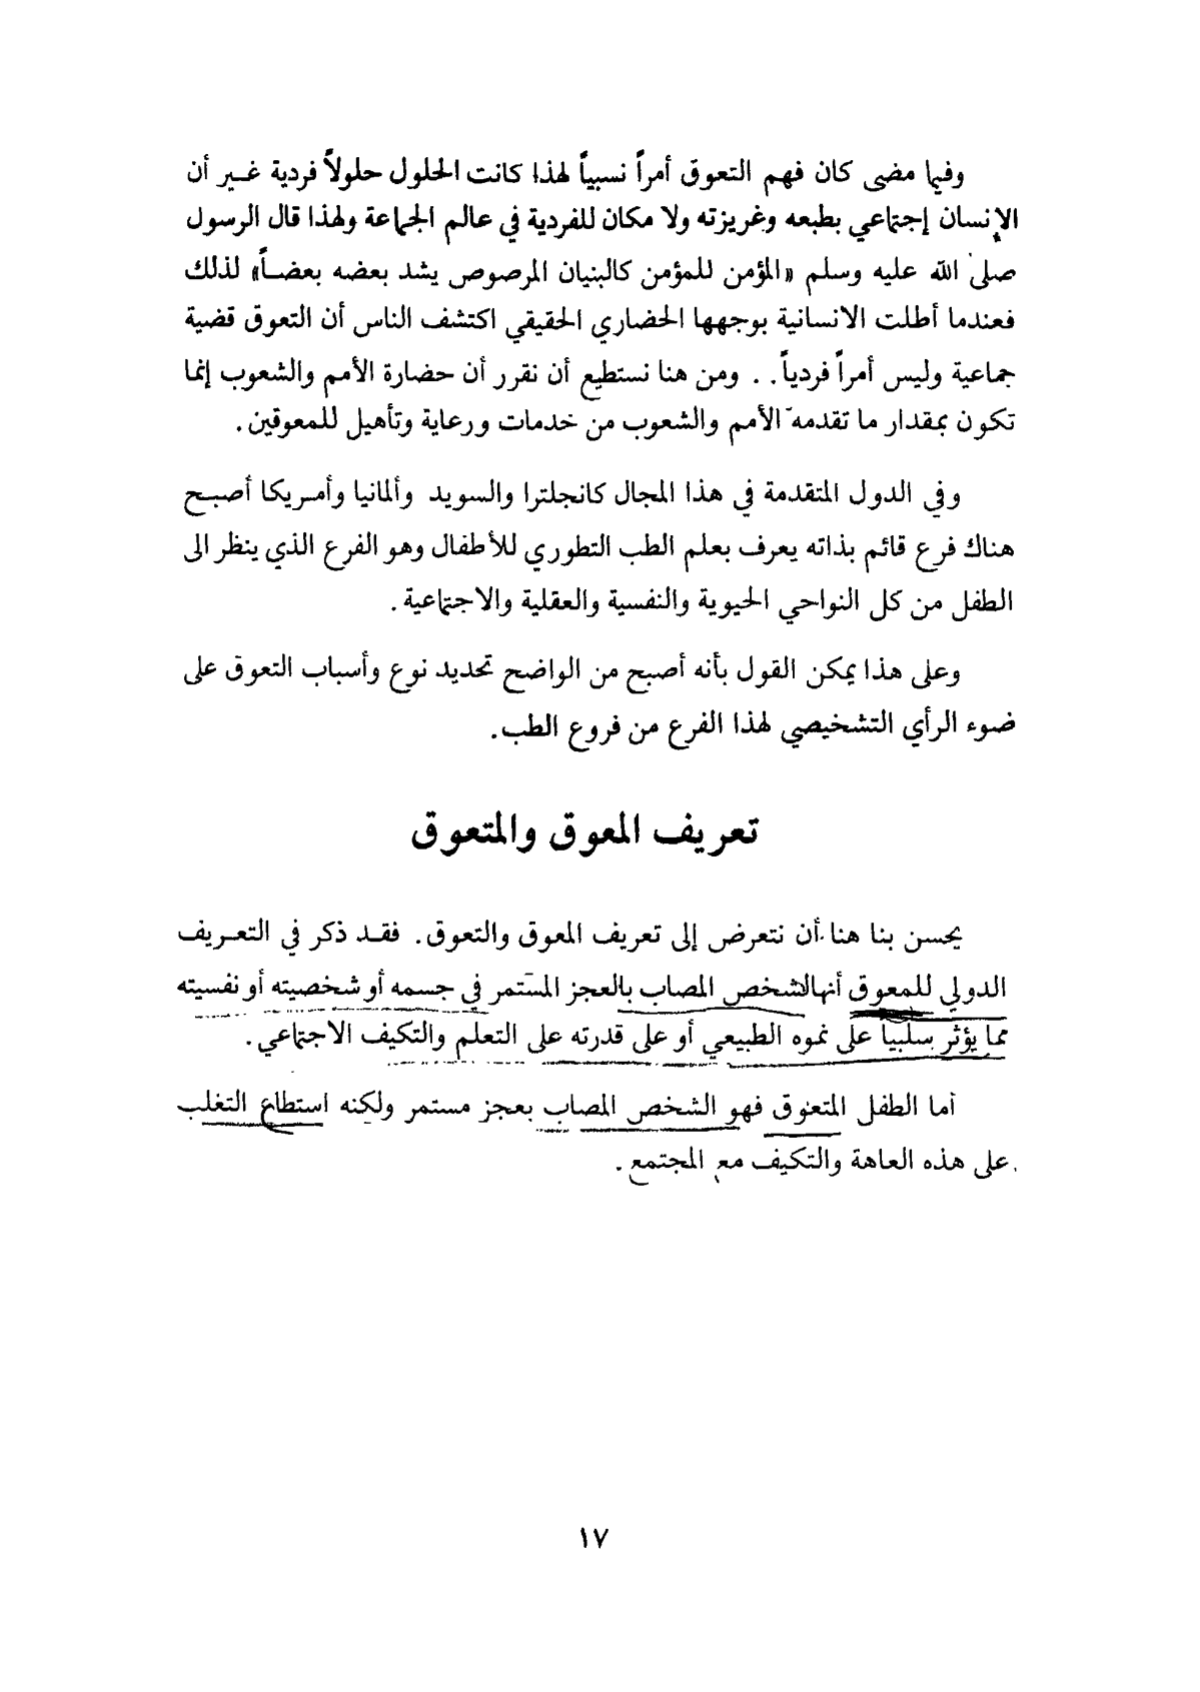 وفيما مضى كان فهم التعوق أمراً نسبياً لهذا كانت الحلول حلولاً فردية غير أن
الإنسان إجتماعي بطبعه وغريزته ولا مكان للفردية في عالم الجماعة ولهذا قال الرسول
صلى الله عليه وسلم «المؤمن للمؤمن كالبنيان المرصوص يشد بعضه بعضاً» لذلك
فعندما أطلت الانسانية بوجهها الحضاري الحقيقي اكتشف الناس أن التعوق قضية
جماعية وليس أمراً فردياً . . ومن هنا نستطيع أن نقرر أن حضارة الأمم والشعوب إنما
تكون بمقدار ما تقدمه الأمم والشعوب من خدمات ورعاية وتأهيل للمعوقين .
وفي الدول المتقدمة في هذا المجال كانجلترا والسويد وألمانيا وأمريكا أصبح
هناك فرع قائم بذاته يعرف بعلم الطب التطوري للأطفال وهو الفرع الذي ينظر الى
الطفل من كل النواحي الحيوية والنفسية والعقلية والاجتماعية .
وعلى هذا يمكن القول بأنه أصبح من الواضح تحديد نوع وأسباب التعوق على
ضوء الرأي التشخيصي لهذا الفرع من فروع الطب .
تعريف المعوق والمتعوق
يحسن بنا هنا أن نتعرض إلى تعريف المعوق والتعوق . فقد ذكر في التعريف
الدولي للمعوق أنهالشخص المصاب بالعجز المستمر في جسمه أو شخصيته أو نفسيته
مما يؤثر سلبياً على نموه الطبيعي أو على قدرته على التعلم والتكيف الاجتماعي .
أما الطفل المتعوق فهو الشخص المصاب بعجز مستمر ولكنه استطاع التغلب
على هذه العاهة والتكيف مع المجتمع .
١٧